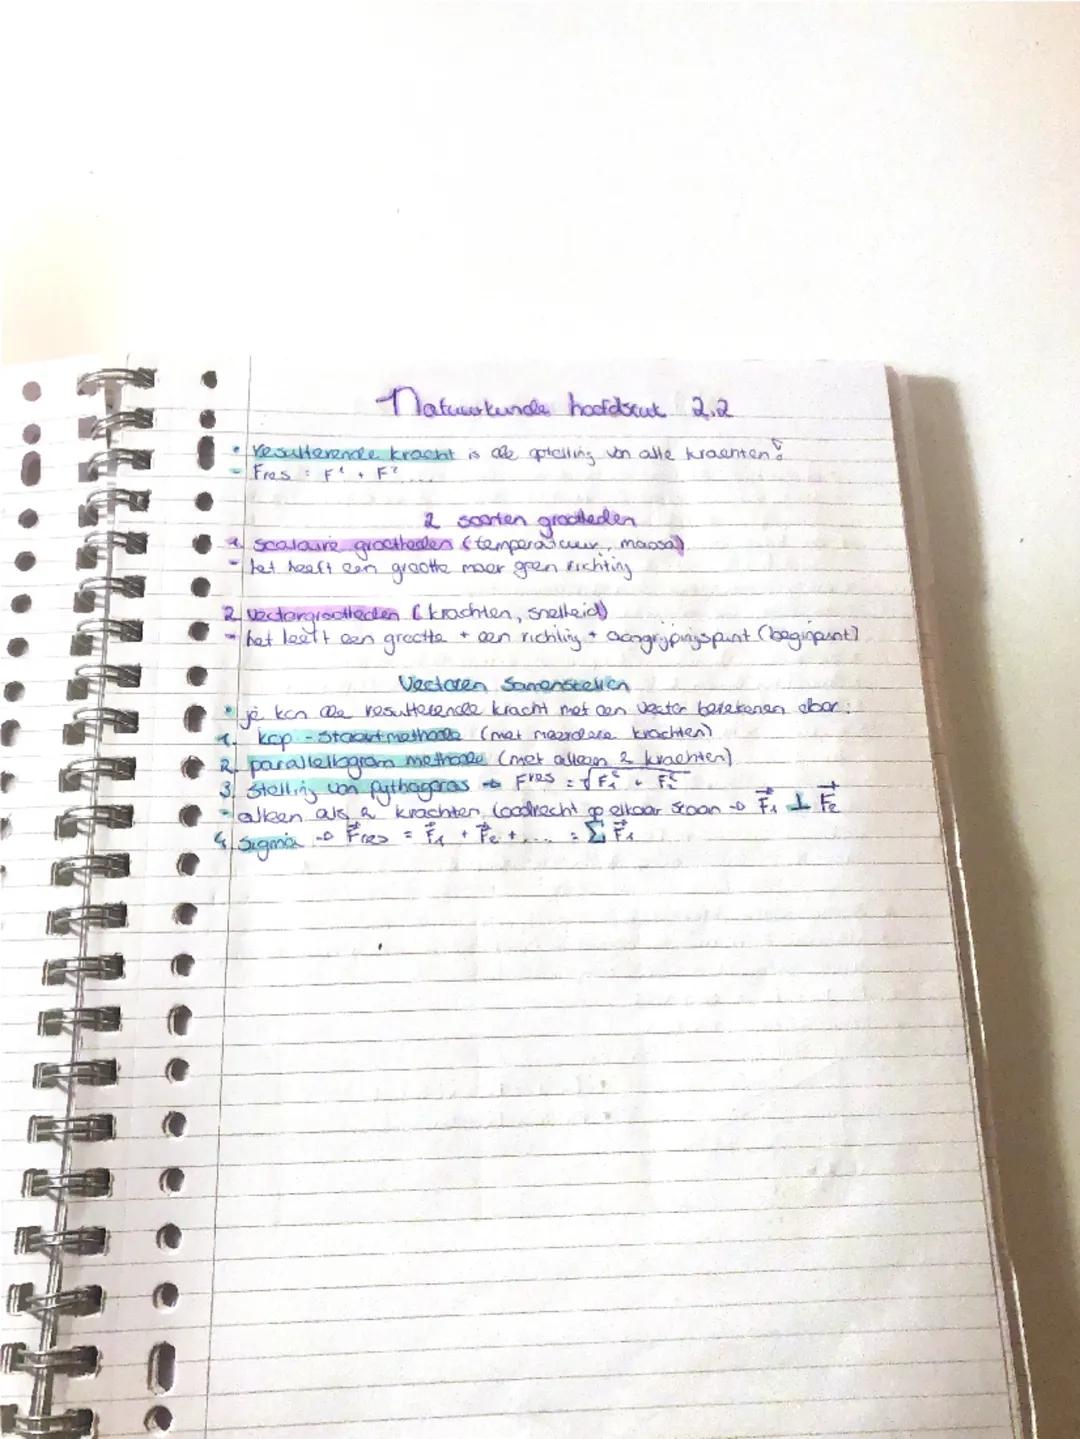 Natuurkunde hoofdstuk 2.2
• resulterende kracht is de optelling van alle krachten!
- Fres = F¹ + F² ....
2 soorten grootheden
1. scalaire grootheden (temperatuur, massa)
- het heeft een grootte maar geen richting
2. vectorgrootheden (krachten, snelheid)
- het heeft een grootte + een richting + aangrijpingspunt (beginpunt)
Vectoren Samenstellen
• je kan de resulterende kracht met een vector berekenen door:
1. kop-staartmethode (met meerdere krachten)
2. parallellogram methode (met alleen 2 krachten)
3. stelling van pythagoras → Fres = √F₁² + F₂²
- alleen als 2 krachten loodrecht op elkaar staan → F⃗₁ ⊥ F⃗₂
4. Sigma → F⃗res = F⃗₁ + F⃗₂ + .... = Σ F⃗₁